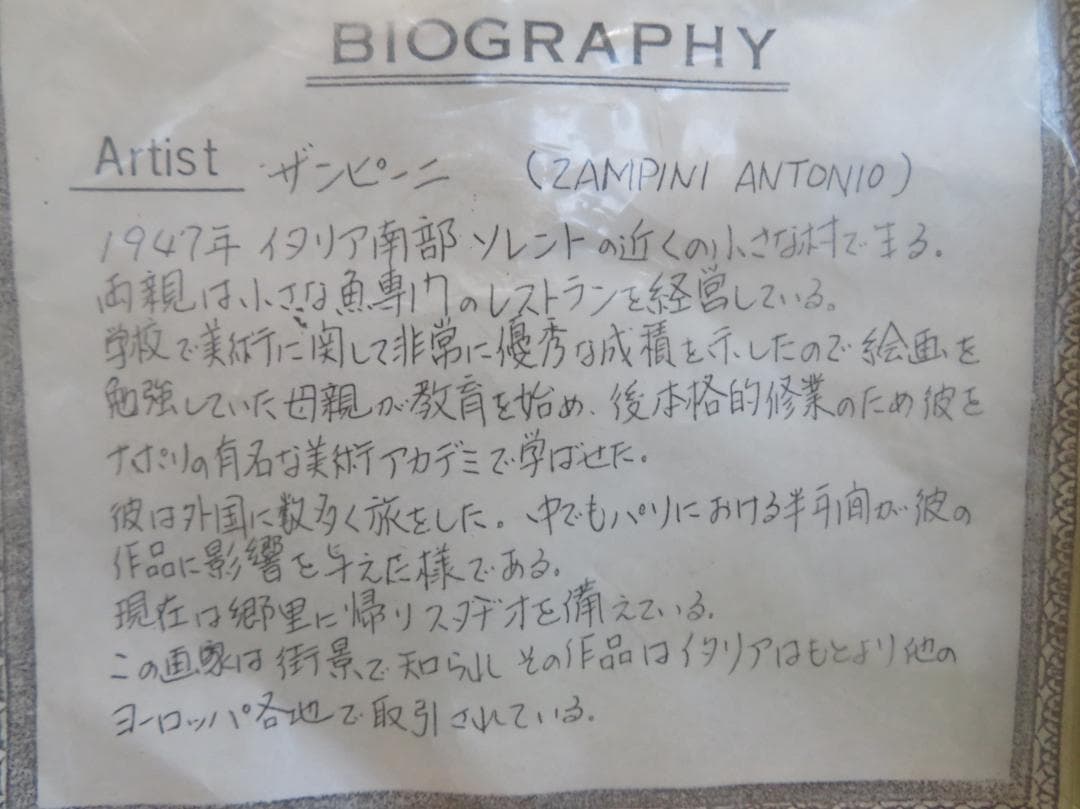 BIOGRAPHY
Artist ザンピーニ (ZAMPINI ANTONIO)
1947年 イタリア南部 ソレントの近くの小さな村で生る。
両親は小さな魚専門のレストランを経営している。
学校で美術に関して非常に優秀な成績を示したので絵画を
勉強していた母親が教育を始め、後本格的修業のため彼を
ナポリの有名な美術アカデミで学ばせた。
彼は外国に数多く旅をした。中でもパリにおける半年間が彼の
作品に影響を与えた様である。
現在は郷里に帰りスタヂオを備えている。
この画家は街景で知られ その作品はイタリアはもとより他の
ヨーロッパ各地で取引されている。